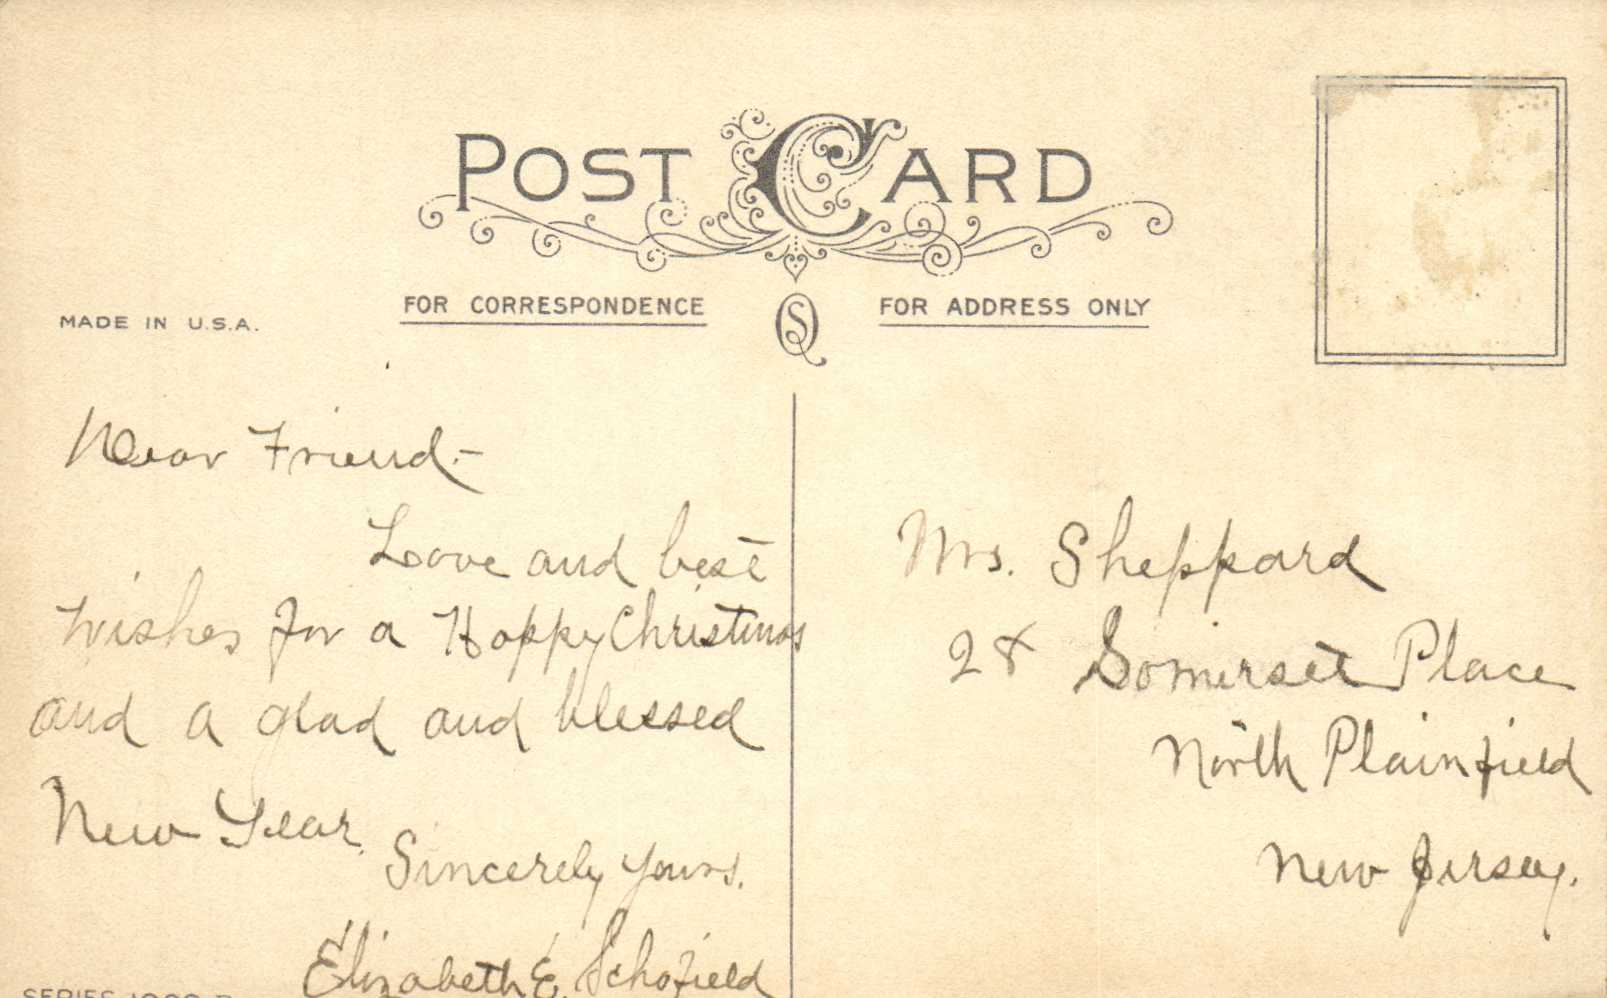 POST CARD
FOR CORRESPONDENCE
FOR ADDRESS ONLY
MADE IN U.S.A.
Dear Friend.-
Love and best
wishes for a Happy Christmas
and a glad and blessed
New Year.
Sincerely yours.
Elizabeth E. Schofield
Mrs. Sheppard
28 Somerset Place
North Plainfield
New Jersey.
SERIES